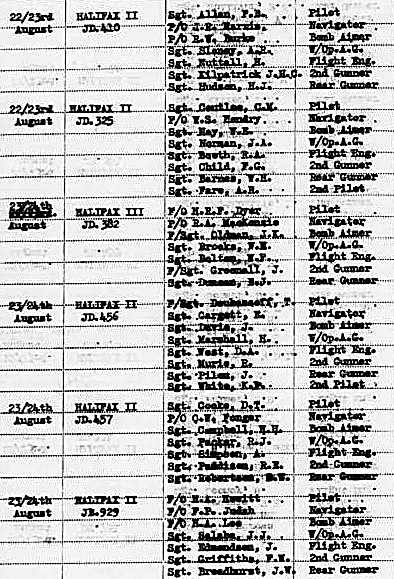 22/23rd HALIFAX II Sgt. Allan, F.R. Pilot
August JD.410 P/O J.R. Harris, Navigator
P/O R.W. Burks Bomb Aimer
Sgt. A.R. W/Op.A.G.
Sgt. Nuttall, H. Flight Eng.
Sgt. Kilpatrick J.H.C. 2nd Gunner
Sgt. Hudson, H.J. Rear Gunner
22/23rd HALIFAX II Sgt. C.M. Pilot
August JD.325 P/O W.S. Hendry Navigator
Sgt. Hay, W.E. Bomb Aimer
Sgt. Norman, J.A. W/Op.A.G.
Sgt. R.A. Flight Eng.
Sgt. Child, F.G. 2nd Gunner
Sgt. Barnes, W.H. Rear Gunner
Sgt. Fare, A.R. 2nd Pilot
23/24th HALIFAX III P/O H.E.F. Dyer Pilot
August JD.382 P/O R.A. MacKenzie Navigator
F/Sgt. Bomb Aimer
Sgt. Brooks, W/Op.A.G.
Sgt. Bolton, Flight Eng.
F/Sgt. Greenall, J. 2nd Gunner
Sgt. Duncan, E.J. Rear Gunner
23/24th HALIFAX II F/Sgt. T. Pilot
August JD.456 Sgt. Navigator
Sgt. Davis, J. Bomb Aimer
Sgt. Marshall, H. W/Op.A.G.
Sgt. West, D.A. Flight Eng.
Sgt. R. 2nd Gunner
Sgt. J. Rear Gunner
Sgt. White, K.F. 2nd Pilot
23/24th HALIFAX II Sgt. Cooke, D.T. Pilot
August JD.457 P/O C.W. Fonger Navigator
Sgt. Campbell, H.H. Bomb Aimer
Sgt. R.J. W/Op.A.G.
Sgt. Simpson, A. Flight Eng.
Sgt. Paddison, R.E. 2nd Gunner
Sgt. Robertson, D.W. Rear Gunner
23/24th HALIFAX II P/O Hewitt Pilot
August JB.929 P/O F.P. Judah Navigator
P/O M.A. Lee Bomb Aimer
Sgt. J.J. W/Op.A.G.
Sgt. Edmondson, J. Flight Eng.
Sgt. Griffiths, F.W. 2nd Gunner
Sgt. Broadhurst, J.W. Rear Gunner